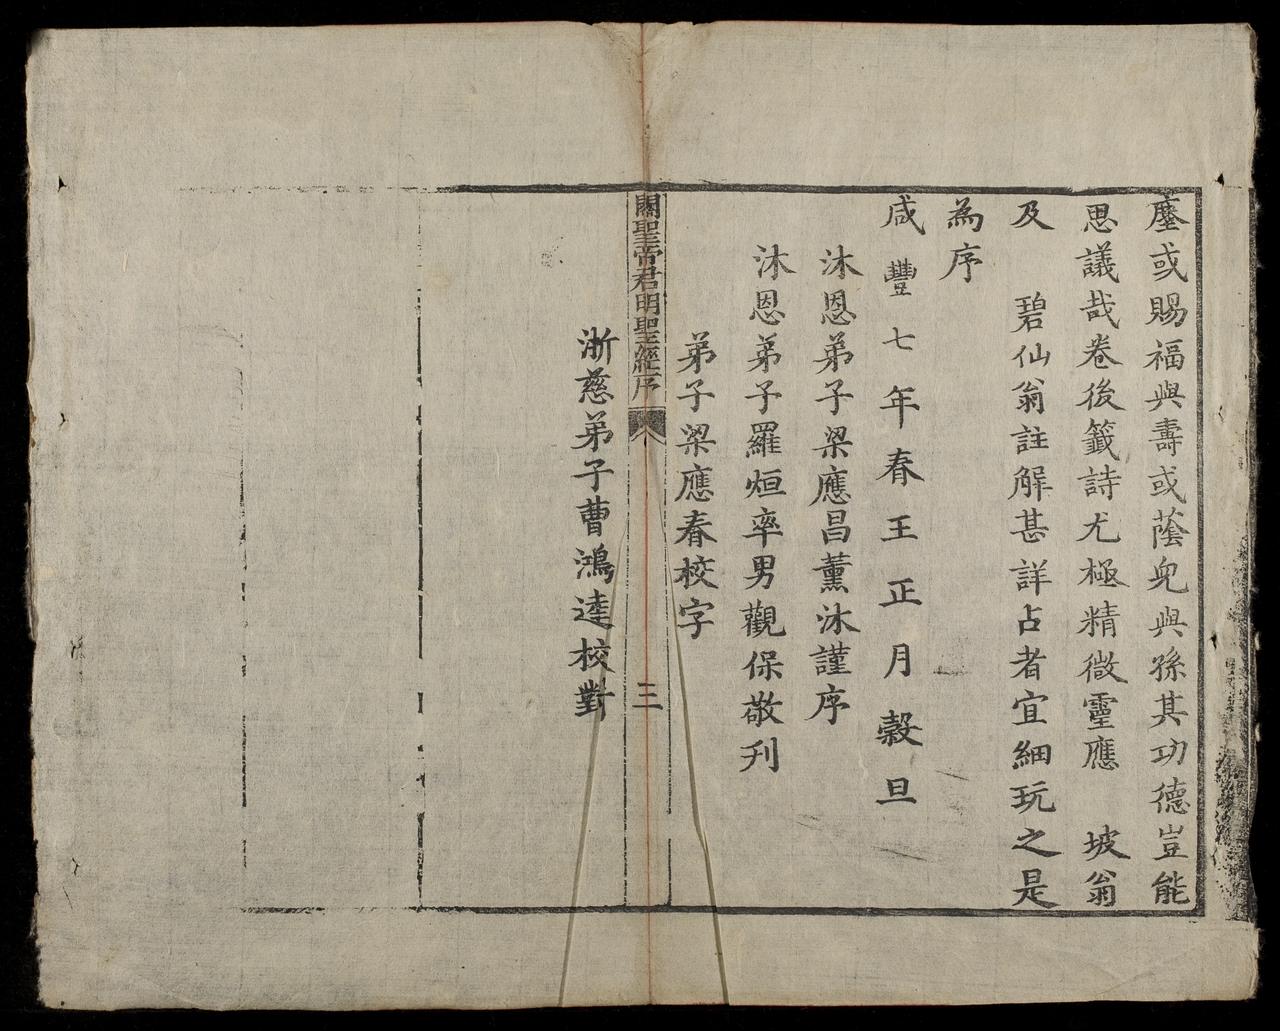 塵或賜福與壽或蔭兒與孫其功德豈能
思議哉卷後籤詩尤極精微靈應　坡翁
及　碧仙翁註解甚詳占者宜細玩之是
為序
咸豐七年春王正月穀旦
沐恩弟子梁應昌薰沐謹序
沐恩弟子羅烜率男觀保敬刋
弟子梁應春校字
關聖帝君明聖經序　三
浙慈弟子曹鴻逵校對